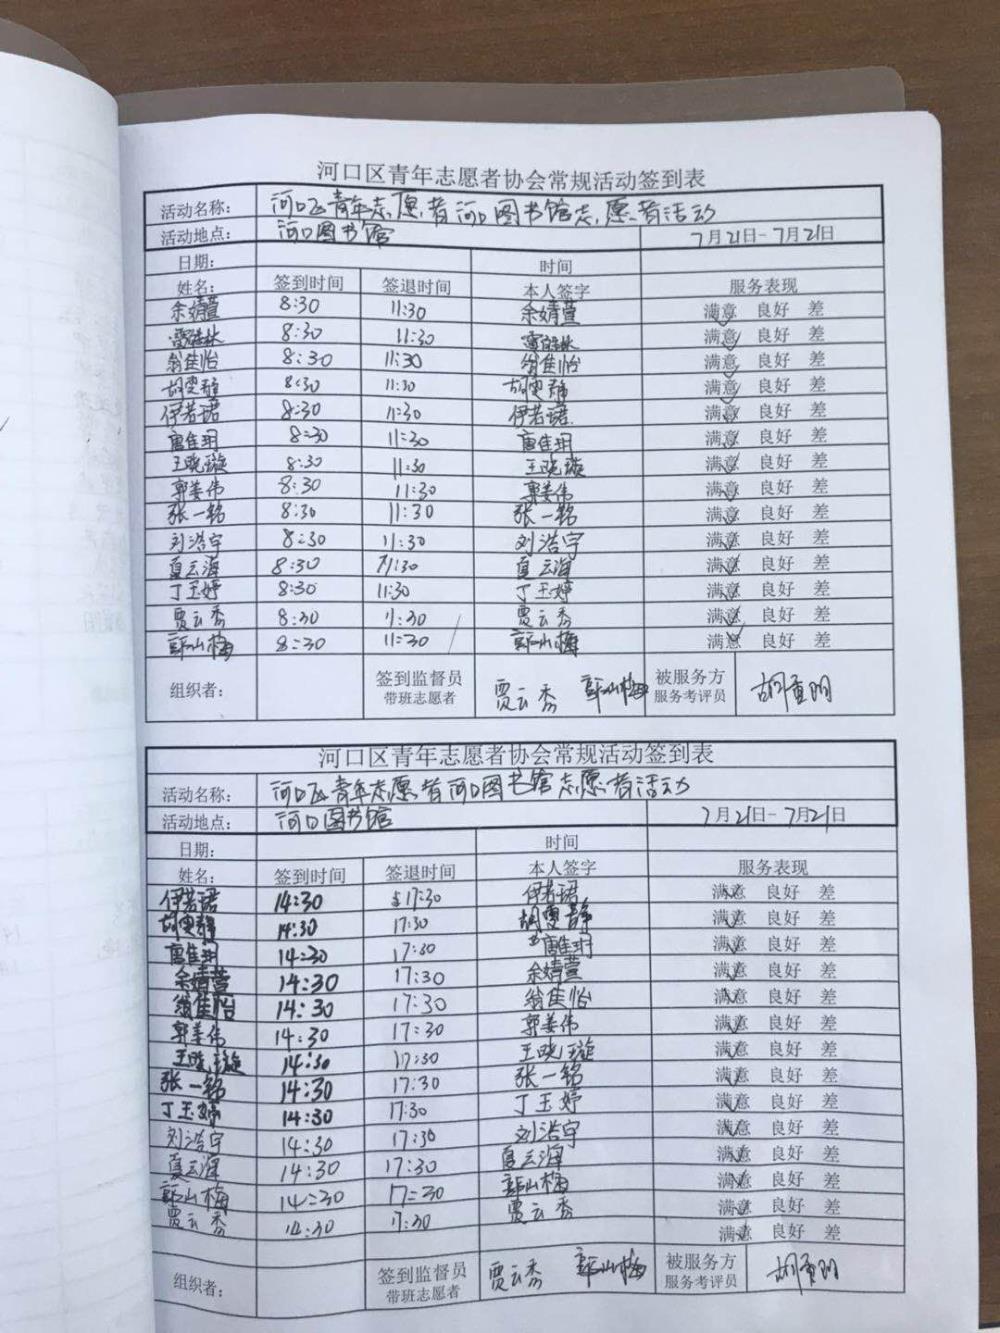 河口区青年志愿者协会常规活动签到表
活动名称： 河口区青年志愿者河口图书馆志愿者活动
活动地点： 河口图书馆 7月21日-7月21日
日期： 时间
姓名： 签到时间 签退时间 本人签字 服务表现
余婧萱 8:30 11:30 余婧萱 满意 良好 差
8:30 11:30 满意 良好 差
翁佳怡 8:30 11:30 翁佳怡 满意 良好 差
胡雯静 8:30 11:30 胡雯静 满意 良好 差
伊若珺 8:30 11:30 伊若珺 满意 良好 差
唐佳玥 8:30 11:30 唐佳玥 满意 良好 差
王晓璇 8:30 11:30 王晓璇 满意 良好 差
郭姜伟 8:30 11:30 郭姜伟 满意 良好 差
张一铭 8:30 11:30 张一铭 满意 良好 差
刘浩宇 8:30 11:30 刘浩宇 满意 良好 差
夏云海 8:30 11:30 夏云海 满意 良好 差
丁玉婷 8:30 11:30 丁玉婷 满意 良好 差
贾云秀 8:30 11:30 贾云秀 满意 良好 差
郭山梅 8:30 11:30 郭山梅 满意 良好 差
组织者： 签到监督员 贾云秀 郭山梅 被服务方
带班志愿者 服务考评员
河口区青年志愿者协会常规活动签到表
活动名称： 河口区青年志愿者河口图书馆志愿者活动
活动地点： 河口图书馆 7月21日-7月21日
日期： 时间
姓名： 签到时间 签退时间 本人签字 服务表现
伊若珺 14:30 17:30 伊若珺 满意 良好 差
胡雯静 14:30 17:30 胡雯静 满意 良好 差
唐佳玥 14:30 17:30 唐佳玥 满意 良好 差
余婧萱 14:30 17:30 余婧萱 满意 良好 差
翁佳怡 14:30 17:30 翁佳怡 满意 良好 差
郭姜伟 14:30 17:30 郭姜伟 满意 良好 差
王晓璇 14:30 17:30 王晓璇 满意 良好 差
张一铭 14:30 17:30 张一铭 满意 良好 差
丁玉婷 14:30 17:30 丁玉婷 满意 良好 差
刘浩宇 14:30 17:30 刘浩宇 满意 良好 差
夏云海 14:30 17:30 夏云海 满意 良好 差
郭山梅 14:30 17:30 郭山梅 满意 良好 差
贾云秀 14:30 17:30 贾云秀 满意 良好 差
满意 良好 差
组织者： 签到监督员 贾云秀 郭山梅 被服务方
带班志愿者 服务考评员